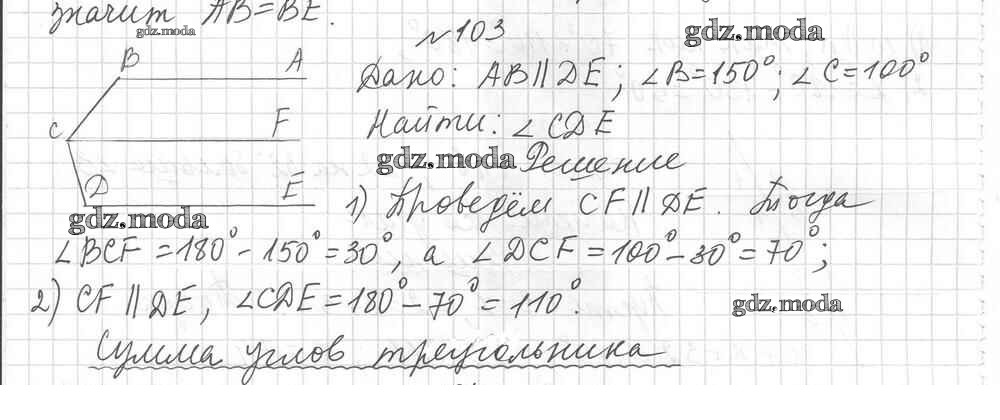 значит AB=BE.
gdz.moda
№103
gdz.moda
B A
Дано: AB∥DE; ∠B=150°; ∠C=100°
C F
Найти: ∠CDE
gdz.moda Решение
D E
1) Проведём CF∥DE. Тогда
gdz.moda
∠BCF=180°-150°=30°, а ∠DCF=100°-30°=70°;
2) CF∥DE, ∠CDE=180°-70°=110°.
gdz.moda
Сумма углов треугольника